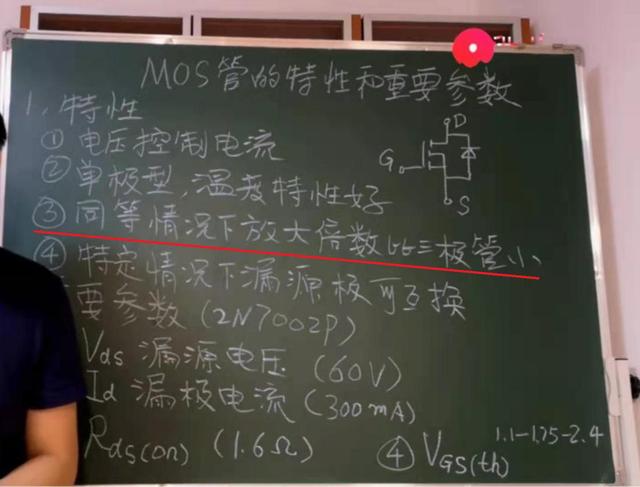 MOS管的特性和重要参数
1、特性
① 电压控制电流
② 单极型,温度特性好
③ 同等情况下放大倍数比三极管小
④ 特定情况下漏源极可互换
要参数(2N7002P)
Vds 漏源电压 (60V)
Id 漏极电流 (300mA)
Rds(on) (1.6Ω)
④ VGS(th)
1.1-1.75-2.4
D
G
S